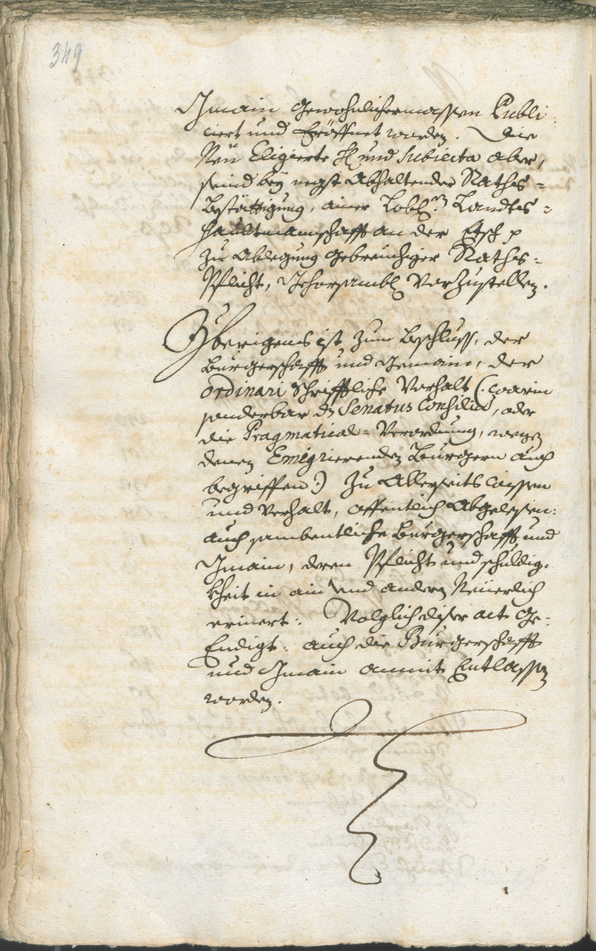 349
Gmain gewohnlichermassen Publi-
ciert und Eröffnet worden. Die
Neu Eligierte H und Subiecta aber,
seind bey negst Abhaltender Raths-
Bestättigung, ainer Lobl: Landts-
Haubtmanschafft an der Etsch p
zu Ablegung gebreuchiger Raths-
Pflicht, Gehorsambl: Vorzustellen.
Yberigens ist zum Beschluss, der
Burgerschafft und Gemain, der
ordinari Schrifftliche Vorhalt (: warin
sonderbar ds Senatus Consilia, oder
die Pragmatical-Verordnung, wegen
denen Emigrierenden Burgern auch
begriffen :) zu Allerseits wissen
und Verhalt, offentlich Abgelesen:
auch sambentliche Burgerschafft und
Gmain, dren Pflicht und schuldig-
kheit in ain und andern Neuerlich
erinert: Volglich diser act Ge-
Endigt: auch die Burgerschafft
und Gmain anmit Entlassen
worden.